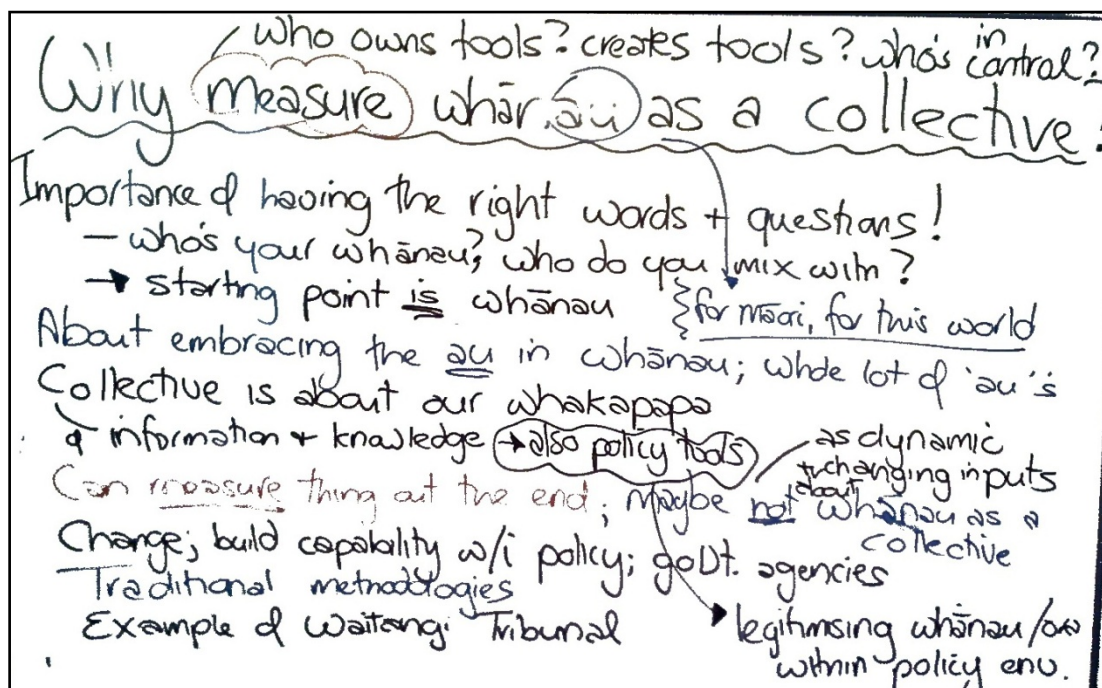 who owns tools? creates tools? who's in control?
Why measure whānau as a collective?
Importance of having the right words + questions!
– who's your whānau? who do you mix with?
→ starting point is whānau
for māori, for this world
About embracing the au in whānau; whole lot of 'au's
Collective is about our whakapapa
& information + knowledge → also policy tools
as dynamic + changing inputs
Can measure thing at the end; maybe not about whānau as a collective
Change; build capability w/i policy; govt. agencies
Traditional methodologies
Example of Waitangi Tribunal
legitimising whānau/
within policy env.